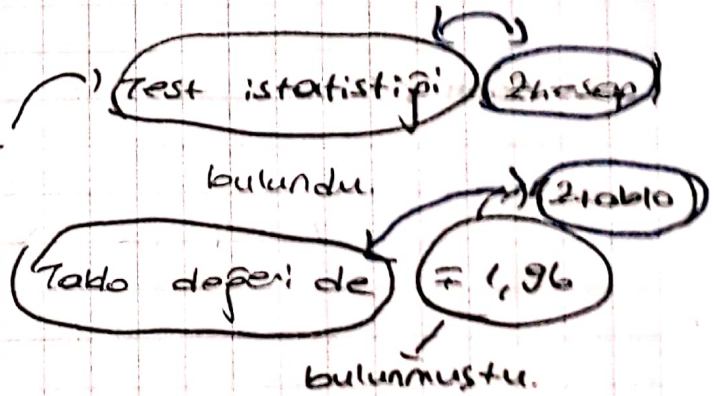 Test istatistiği Zhesap
bulundu.
Ztablo
Tablo değeri de ∓ 1,96
bulunmuştu.